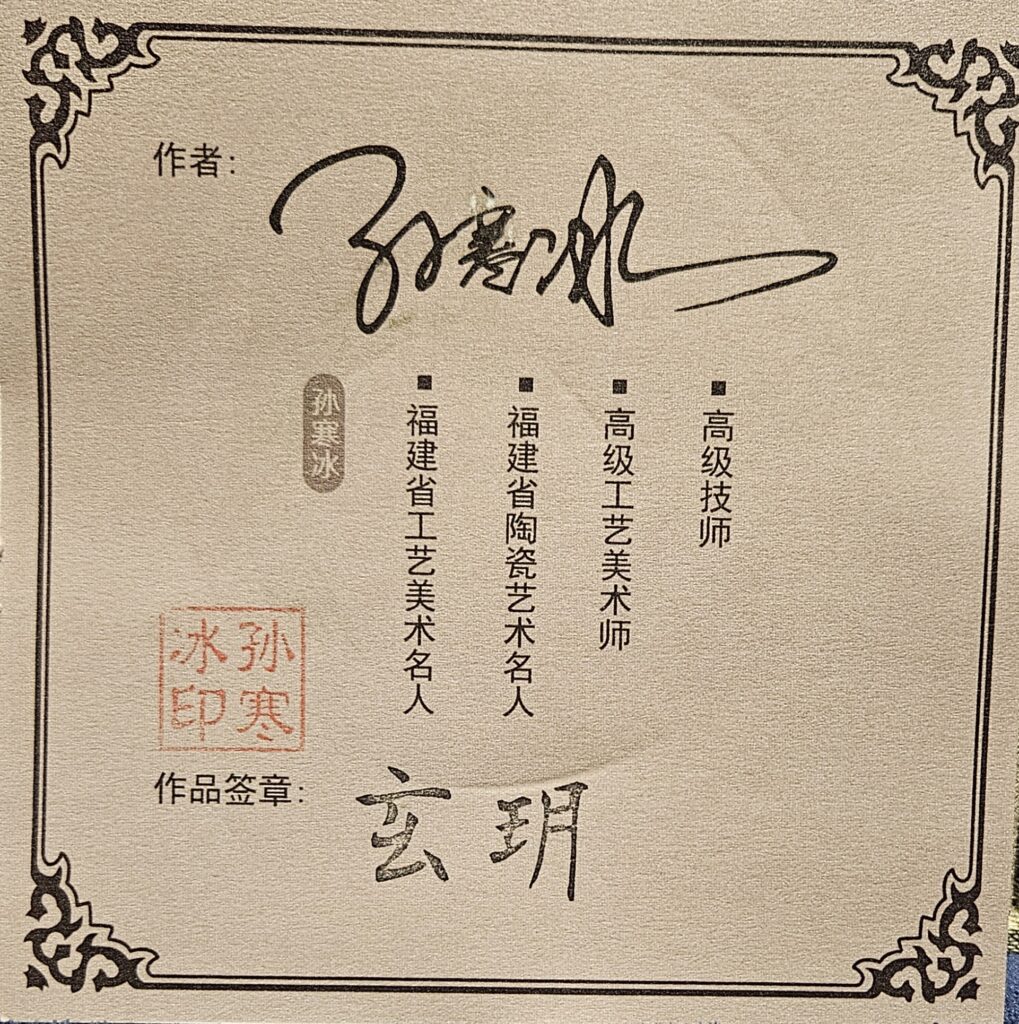 作者：
孙寒冰
高级技师
高级工艺美术师
福建省陶瓷艺术名人
福建省工艺美术名人
孙寒冰
孙寒冰印
作品签章：
玄玥